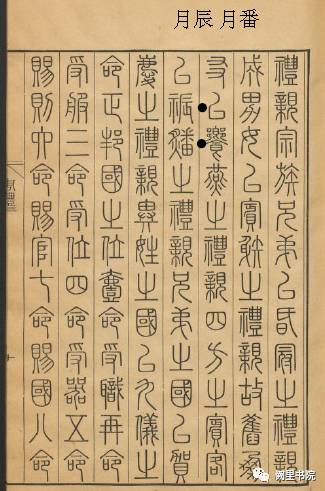 月辰 月番
禮親宗族兄弟以昏冠之禮親
成男女以賓射之禮親故舊朋
友以饗燕之禮親四方之賓客
以祳膰之禮親兄弟之國以賀
慶之禮親異姓之國以九儀之
命正邦國之位壹命受職再命
受服三命受位四命受器五命
賜則六命賜官七命賜國八命
阙里书院